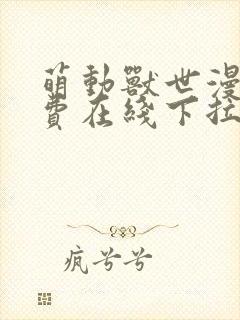 萌動獸世漫
費在綫下拉
疯兮兮